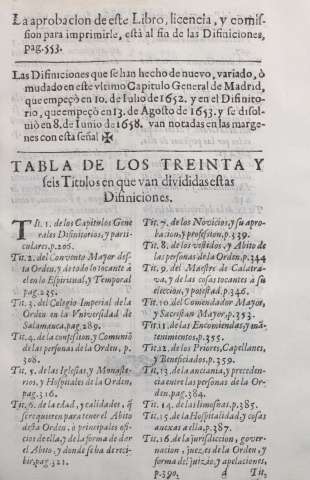 La aprobacion de este Libro, licencia, y comis-
sion para imprimirle, està al fin de las Difiniciones,
pag.553.
Las Difiniciones que se han hecho de nuevo, variado, ò
mudado en este vltimo Capitulo General de Madrid,
que empeçò en 10. de Iulio de 1652. y en el Difinito-
rio, que empeçò en 13. de Agosto de 1653. y se disol-
viò en 8. de Iunio de 1658. van notadas en las marge-
nes con esta señal ✠
TABLA DE LOS TREINTA Y
seis Titulos en que van divididas estas
Difiniciones.
TIt. 1. de los Capitulos Gene
rales Difinitorios, y parti-
culares, p.206.
Tit. 2. del Convento Mayor des-
ta Orden, y de todo lo tocante à
el en lo Espiritual, y Temporal
pag.235.
Tit. 3. del Colegio Imperial de la
Orden en la Vniversidad de
Salamanca, pag.289.
Tit. 4. de la confession, y Comuniō
de las personas de la Orden, p.
308.
Tit. 5. de las Iglesias, y Monaste-
rios, y Hospitales de la Orden,
pag.316.
Tit. 6. de la edad, y calidades, q̄
se requieren para tener el Abito
desta Orden, ò principales ofi-
cios de ella, y de la forma de dar
el Abito, y donde se ha de reci-
bir, pag.321.
Tit. 7. de los Novicios, y su apro-
bacion, y profession, p.339.
Tit. 8. de los vestidos, y Abito de
las personas de la Orden, p.344
Tit. 9. del Maestre de Calatra-
va, y de las cosas tocantes à su
eleccion, y potestad, p.346.
Tit. 10. del Comendador Mayor,
y Sacristan Mayor, p.353.
Tit. 11. de las Encomiendas, y mā-
tenimientos, p.355.
Tit. 12. de los Priores, Capellanes,
y Beneficiados, p.359.
Tit. 13. de la anciania, y preceden-
cia entre las personas de la Or-
den, pag.384.
Tit. 14. de las limosnas, p.385.
Tit. 15. de la Hospitalidad, y cosas
anexas a ella, p.387.
Tit. 16. de la jurisdiccion, gover-
nacion, juezes de la Orden, y
forma del juizio, y apelaciones,
p.390. d Tit.